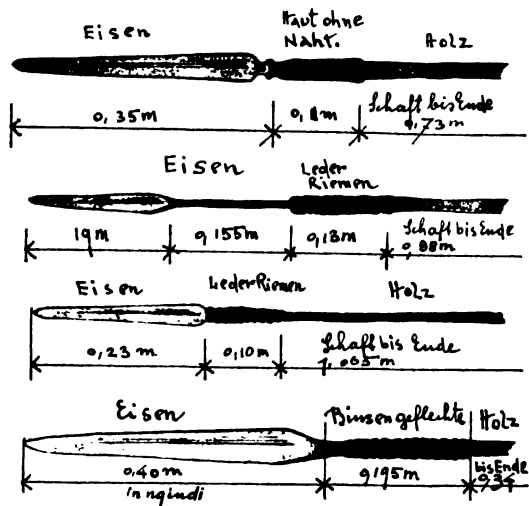 Eisen Haut ohne Naht. Holz
0,35m 0,11m Schaft bis Ende 0,73m
Eisen Leder Riemen
19m 0,155m 0,13m Schaft bis Ende 0,88m
Eisen LederRiemen Holz
0,23m 0,10m Schaft bis Ende 1,065m
Eisen Binsengeflechte Holz
0,40m 0,195m bis Ende
in nqindi